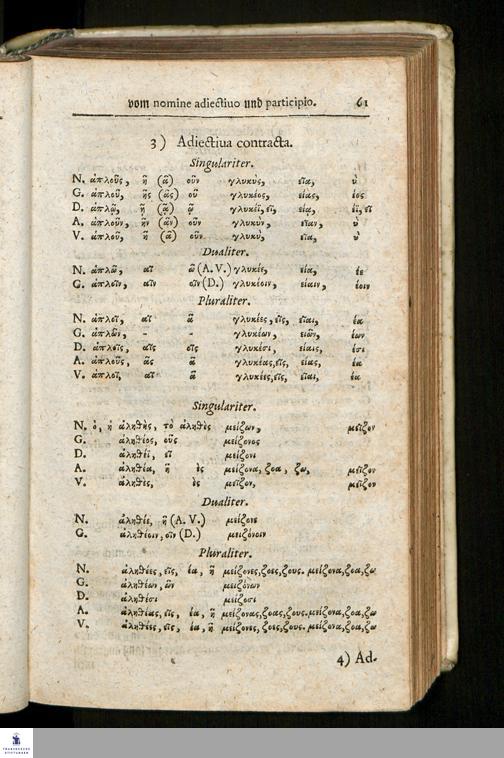 vom nomine adiectiuo und participio. 61
3) Adiectiua contracta.
Singulariter.
N. ἁπλοῦς, ῆ (ᾶ) οῦν γλυκὺς, εῖα, ὺ
G. ἁπλοῦ, ῆς (ᾶς) οῦ γλυκέος, είας, έος
D. ἁπλῷ, ῇ (ᾷ) ῷ γλυκέϊ, εῖ, είᾳ, έϊ, εῖ
A. ἁπλοῦν, ῆν (ᾶν) οῦν γλυκὺν, εῖαν, ὺ
V. ἁπλοῦ, ῆ (ᾶ) οῦν γλυκὺ, εῖα, ὺ
Dualiter.
N. ἁπλῶ, αῖ ῶ (A. V.) γλυκέε, εία, έε
G. ἁπλοῖν, αῖν οῖν (D.) γλυκέοιν, είαιν, έοιν
Pluraliter.
N. ἁπλοῖ, αῖ ᾶ γλυκέες, εῖς, εῖαι, έα
G. ἁπλῶν, - - γλυκέων, ειῶν, έων
D. ἁπλοῖς, αῖς οῖς γλυκέσι, είαις, έσι
A. ἁπλοῦς, ᾶς ᾶ γλυκέας, εῖς, είας, έα
V. ἁπλοῖ, αῖ ᾶ γλυκέες, εῖς, εῖαι, έα
Singulariter.
N. ὁ, ἡ ἀληθὴς, τὸ ἀληθὲς μείζων, μεῖζον
G. ἀληθέος, οῦς μείζονος
D. ἀληθέϊ, εῖ μείζονι
A. ἀληθέα, ῆ ὲς μείζονα, ζοα, ζω, μεῖζον
V. ἀληθὲς, ὲς μεῖζον, μεῖζον
Dualiter.
N. ἀληθέε, ῆ (A. V.) μείζονε
G. ἀληθέοιν, οῖν (D.) μειζόνοιν
Pluraliter.
N. ἀληθέες, εῖς, έα, ῆ μείζονες, ζοες, ζους. μείζονα, ζοα, ζω
G. ἀληθέων, ῶν μειζόνων
D. ἀληθέσι μείζοσι
A. ἀληθέας, εῖς, έα, ῆ μείζονας, ζοας, ζους. μείζονα, ζοα, ζω
V. ἀληθέες, εῖς, έα, ῆ μείζονες, ζοες, ζους. μείζονα, ζοα, ζω
4) Ad-